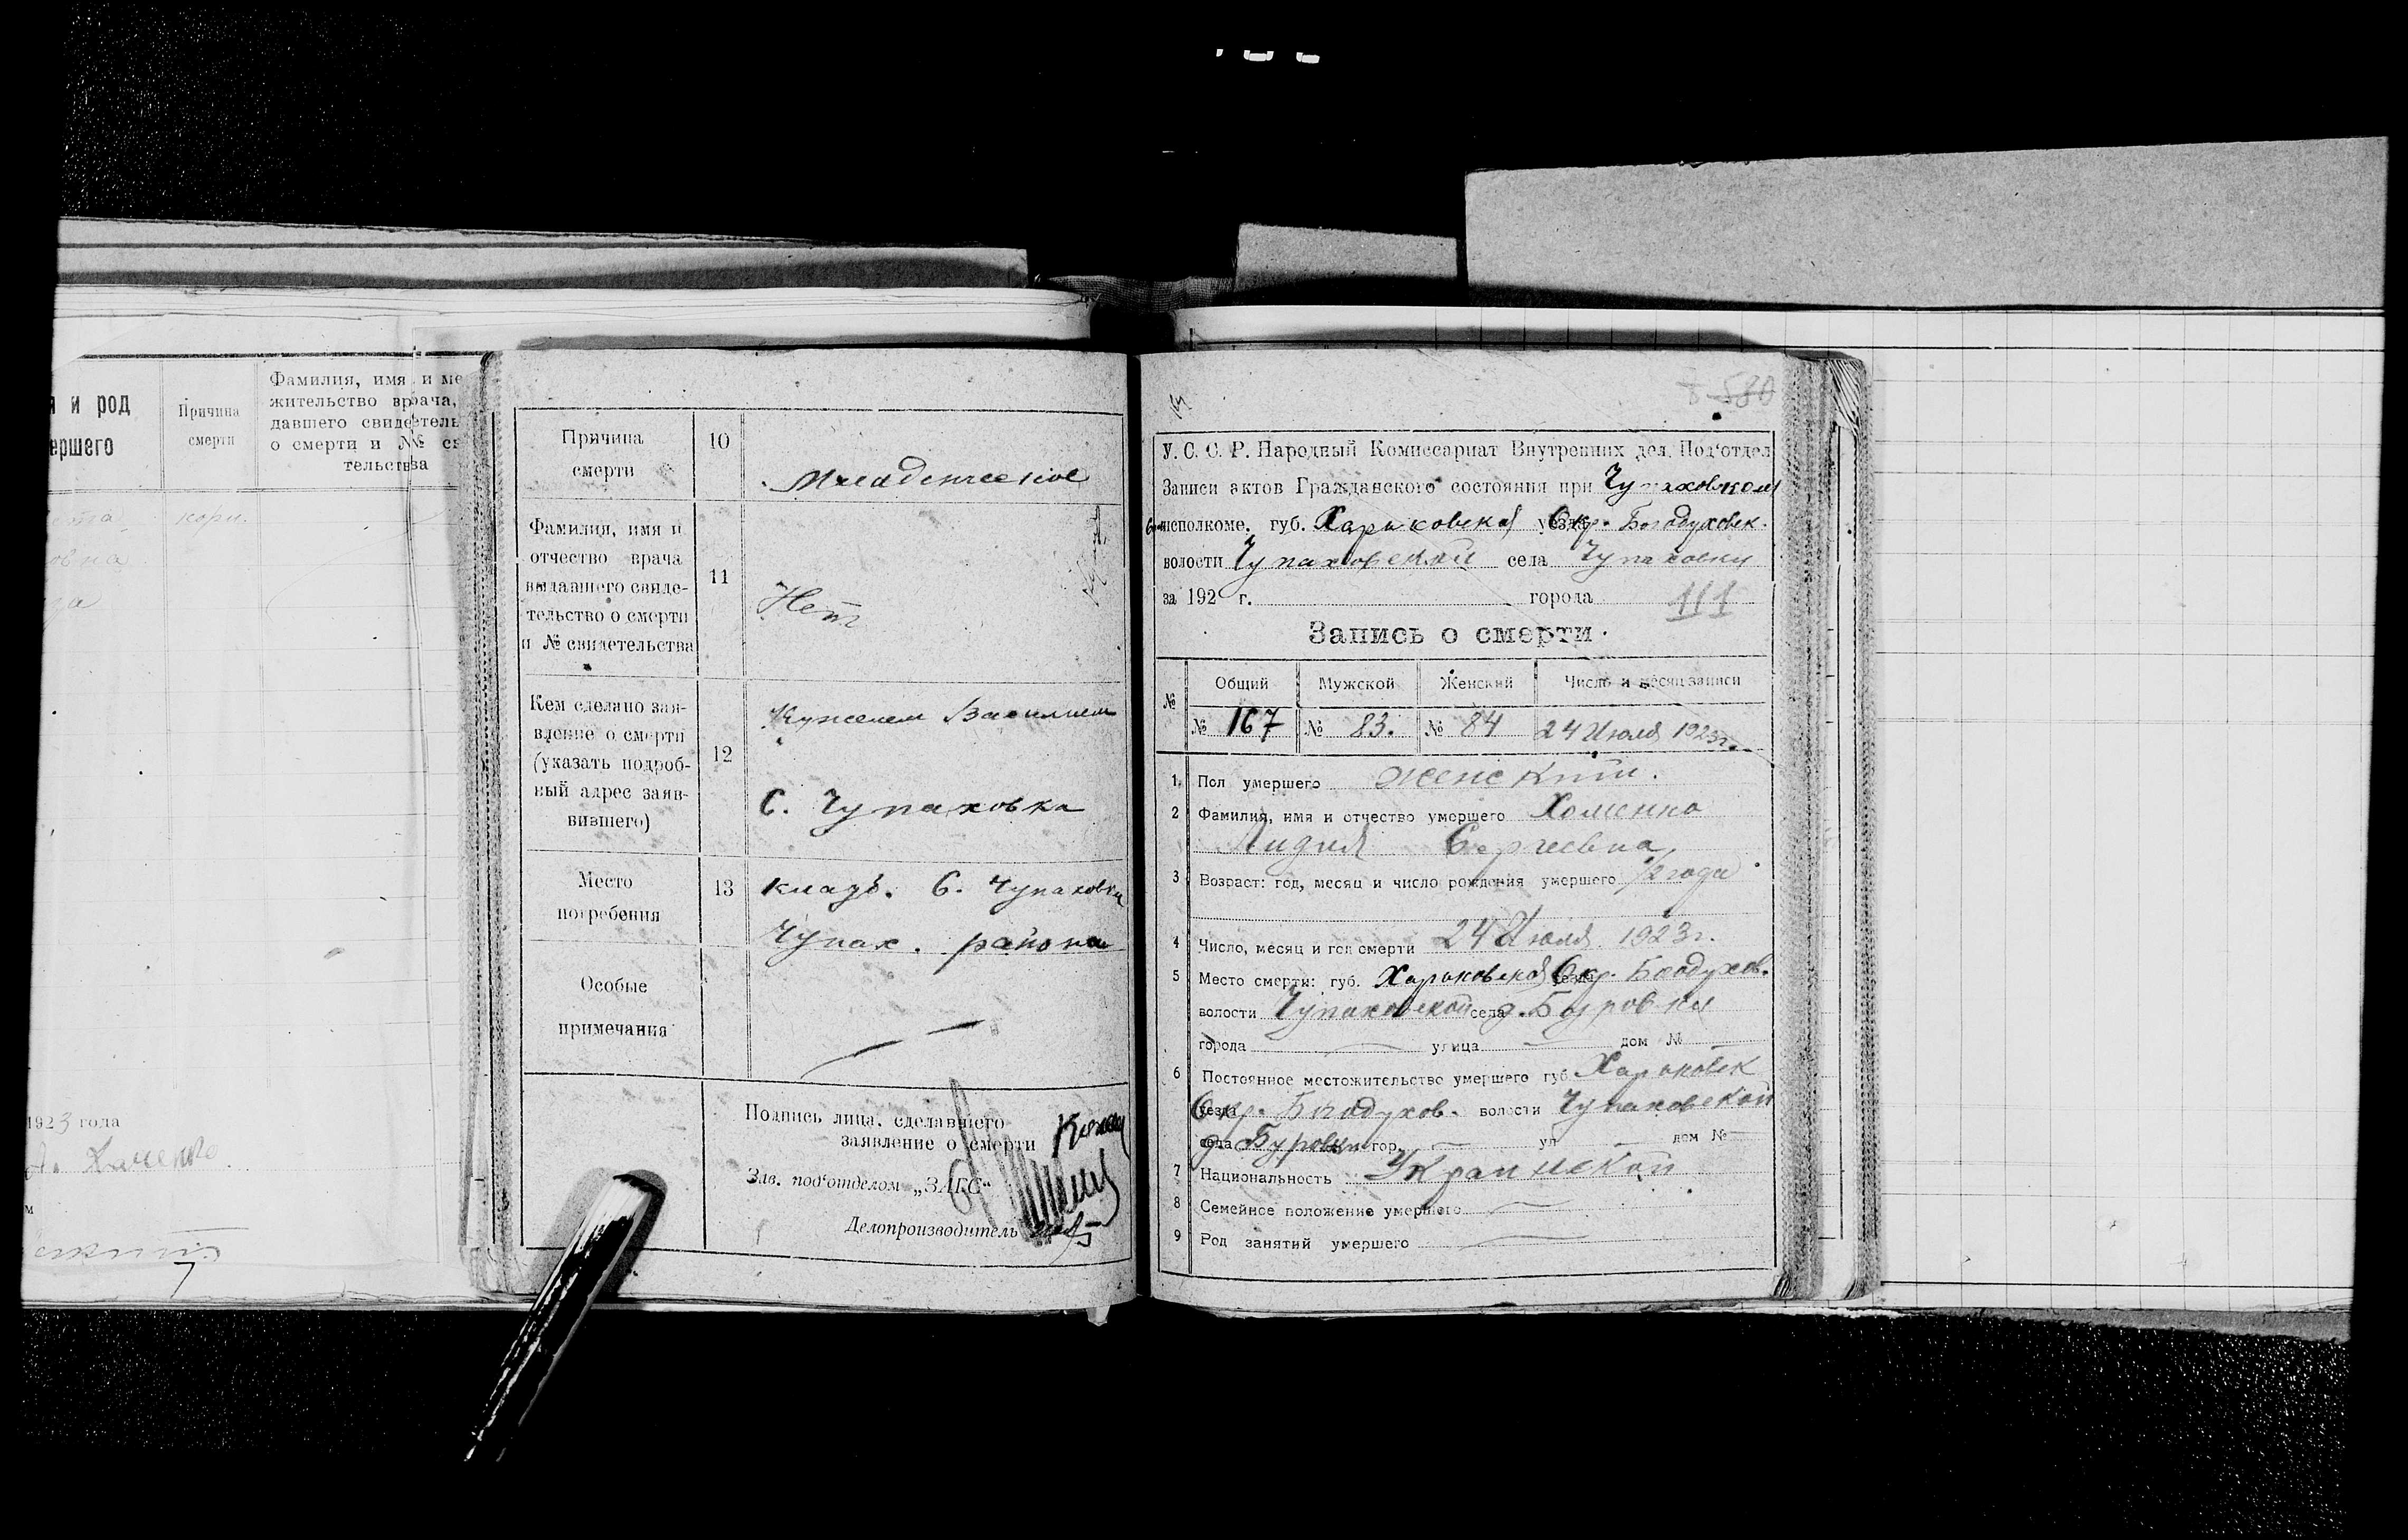 и род
ершего
Причина
смерти
Фамилия, имя и ме
жительство врача,
давшего свидетель
о смерти и №
тельства
кори.
овна
1923 года
Хоменко
Причина
смерти
10
Младенческое
Фамилия, имя и
отчество врача
выдавшего свиде-
тельство о смерти
и № свидетельства
11
Нет
Кем сделано зая-
вление о смерти
(указать подроб-
ный адрес заяв-
вившего)
12
Кужелем Василием
С. Чупаховка
Место
погребения
13
кладб. С. Чупаховки
Чупах. района
Особые
примечания
Подпись лица, сделавшего
заявление о смерти
Зав. под'отделом „ЗАГС“
Делопроизводитель
580
У. С. С. Р. Народный Комиссариат Внутренних дел. Под'отдел
Записи актов Гражданского состояния при Чупаховском
исполкоме. губ. Харьковской уезда Окр. Богодуховск.
волости Чупаховской села Чупаховки
за 192 г. города 111
Запись о смерти.
№
Общий
Мужской
Женский
Число и месяц записи
№ 167
№ 83.
№ 84
24 Июля 1923г.
1. Пол умершего женский.
2 Фамилия, имя и отчество умершего Хоменко
Лидия Сергеевна
3 Возраст: год, месяц и число рождения умершего 1/2 года
4 Число, месяц и год смерти 24 Июля 1923г.
5 Место смерти: губ. Харьковской уезда Окр. Богодухов.
волости Чупаховской села д. Буровки
города улица дом №
6 Постоянное местожительство умершего губ. Харьковск
уезда Окр. Богодухов. волости Чупаховской
села д. Буровки гор. ул дом №
7 Национальность Украинской
8 Семейное положение умершего
9 Род занятий умершего